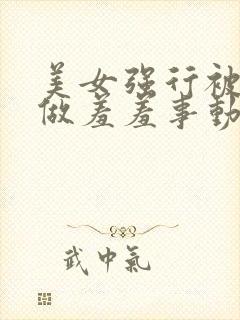 美女强行被
做羞羞事动
武中氣